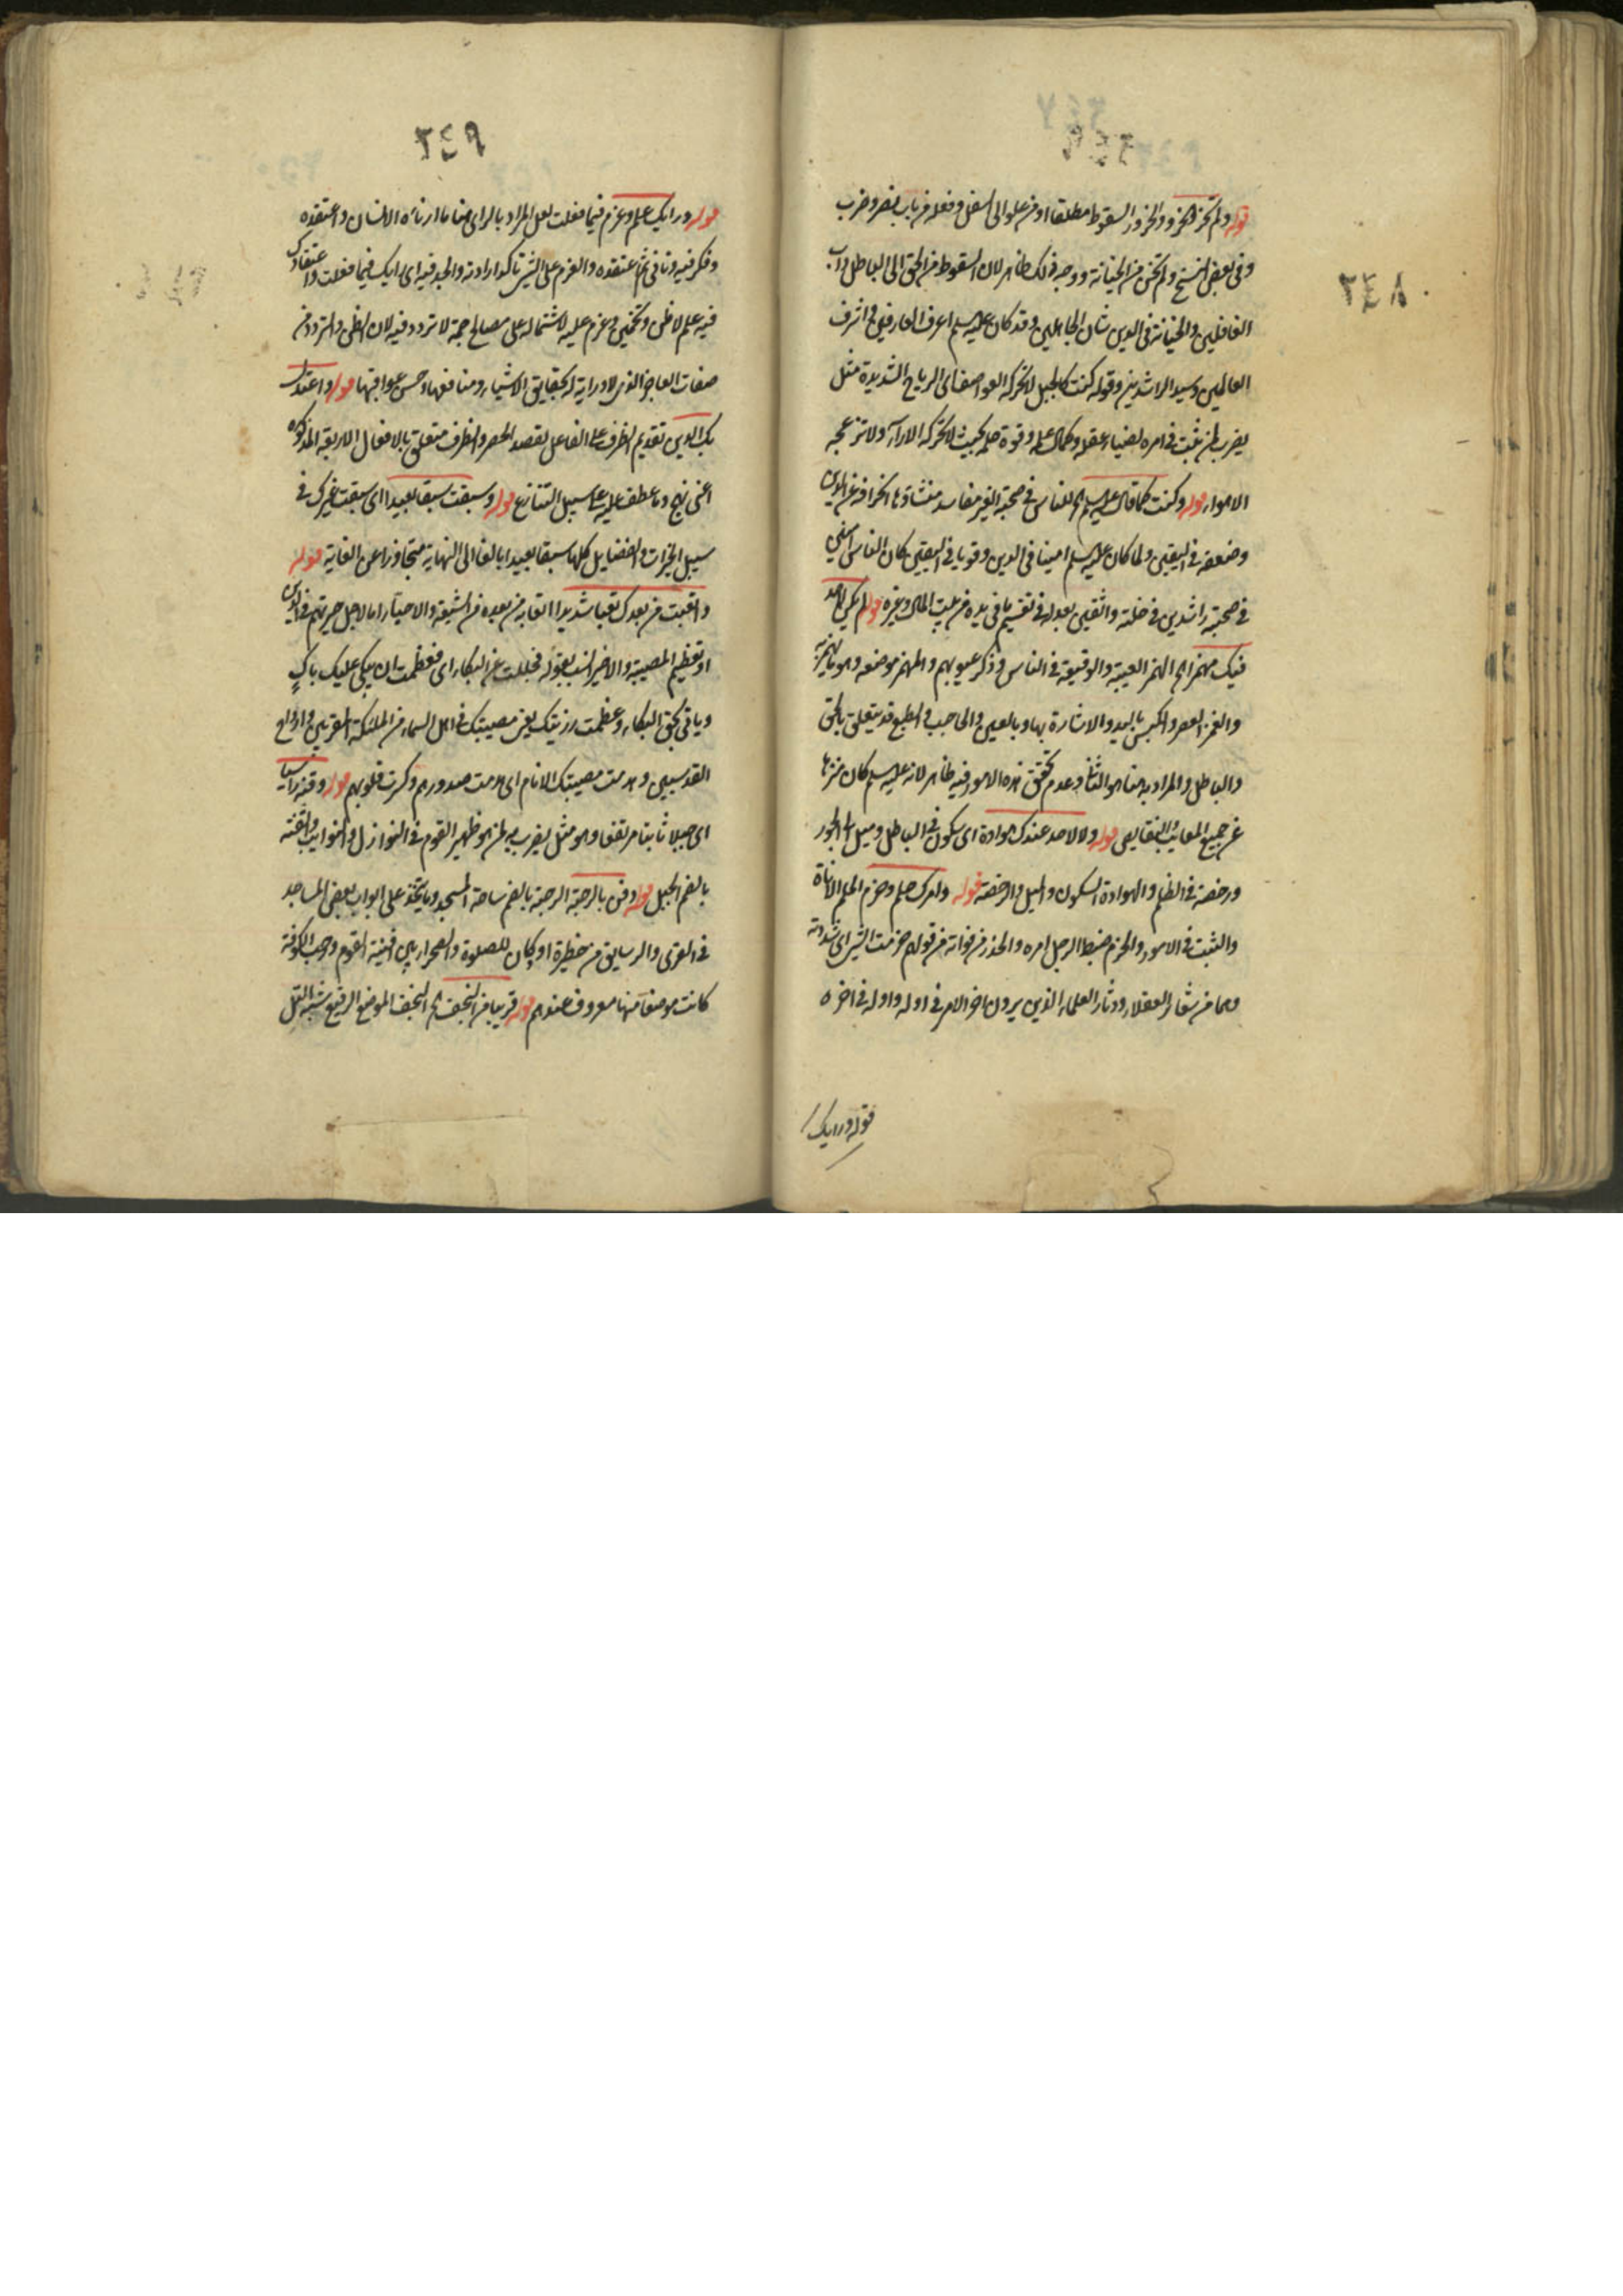 ٣٤٨
قوله ولم تخر الخرو والخرور السقوط مطلقا او من علو الى اسفل وفعله من باب نصر وضرب
وفى بعض النسخ ولم تخن من الخيانة ووجه ذلك ظاهر لان السقوط من الحق الى الباطل داب
الغافلين والخيانة فى الدين شان الجاهلين وقد كان عليه السلم اعرف العارفين واشرف
العالمين وسيد الراشدين وقوله كنت كالجبل لا تحركه العواصف اى الرياح الشديدة مثل
يضرب لمن تثبت فى امره لضياء عقله وكمال علمه وقوة حلمه بحيث لا تحركه الاراء ولا تزعجه
الاهواء قوله وكنت كما قال عليه السلم امن الناس فى صحبته الغير مفاسد منشاوها انحرافه عن الدين
وضعفه فى اليقين ولما كان عليه السلم امينا فى الدين وقويا فى اليقين كان الناس آمنين
فى صحبته راشدين فى خلته واثقين بعدله فى تقسيم ما فى يده من بيت المال وغيره قوله لم يكن لاحد
فيك مهمز اه الهمز الغيبة والوقيعة فى الناس وذكر عيوبهم والمهمز موضعه وهو ما يهمز به
والغمز العصر والكبس باليد والاشارة بها وبالعين والحاجب والطمع قد يتعلق بالحق
والباطل والمراد به هنا هو الثانى وعدم تحقق هذه الامور فيه ظاهر لانه عليه السلم كان منزها
عن جميع المعايب والنقايص قوله ولا لاحد عندك هوادة اى سكون فى الباطل وميل الى الجور
ورخصة فى الظلم والهوادة السكون والميل والرخصة قوله وامرك حلم وحزم الحلم الاناة
والتثبت فى الامور والحزم ضبط الرجل امره والحذر من فواته من قولهم حزمت الشئ اى شددته
وهما من شعار العقلاء ودثار العلماء الذين يرون اخر الامر فى اوله واوله فى اخره
قوله ورايك
٣٤٩
قوله ورايك علم وعزم فيما فعلت لعل المراد بالراى هنا ما ارتآه الانسان واعتقده
وفكر فيه وتانى ثم اعتقده والعزم على الشئ تاكد ارادته والجد فيه اى رايك فيما فعلت واعتقادك
فيه علم لا ظن وتخمين وعزم عليه لاشتماله على مصالح جمة لا تردد فيه لان الظن والتردد من
صفات العاجز الذى لا دراية له بحقايق الاشياء ومنافعها وحسن عواقبها قوله واعتدل
بك الدين تقديم الظرف على الفاعل لقصد الحصر والظرف متعلق بالافعال الاربعة المذكورة
اعنى نهج وما عطف عليه على سبيل التنازع قوله وسبقت سبقا بعيدا اى سبقت غيرك فى
سبيل الخيرات والفضايل كلها سبقا بعيدا بالغا الى النهاية متجاوزا عن الغاية قوله
واتعبت من بعدك تعبا شديدا اتعابه من بعده من الشيعة والاحباء اما لاجل حيرتهم فى الدين
او تعظيم المصيبة والاخير انسب بقوله فجللت عن البكاء اى فعظمت ان يبكى عليك باكٍ
وياتى بحق البكاء وعظمت رزيتك يعنى مصيبتك فى اهل السماء من الملئكة المقربين وارواح
القدسيين وهدمت مصيبتك الانام اى هدمت صدورهم وكسرت قلوبهم قوله وقنة راسيا
اى جبلا ثابتا مرتفعا وهو مثل يضرب لمن هو ظهير القوم فى النوازل والنوايب والقنة
بالضم الجبل قوله دفن بالرحبة الرحبة بالفتح ساحة المسجد وما يتخذ على ابواب بعض المساجد
فى القرى والرساتيق من حظيرة او دكان للصلوة والصحراء بين افنية القوم ورحبة الكوفة
كانت موضعا منها معروف عندهم قوله قريبا من النجف اه النجف الموضع الرفيع شبه التل